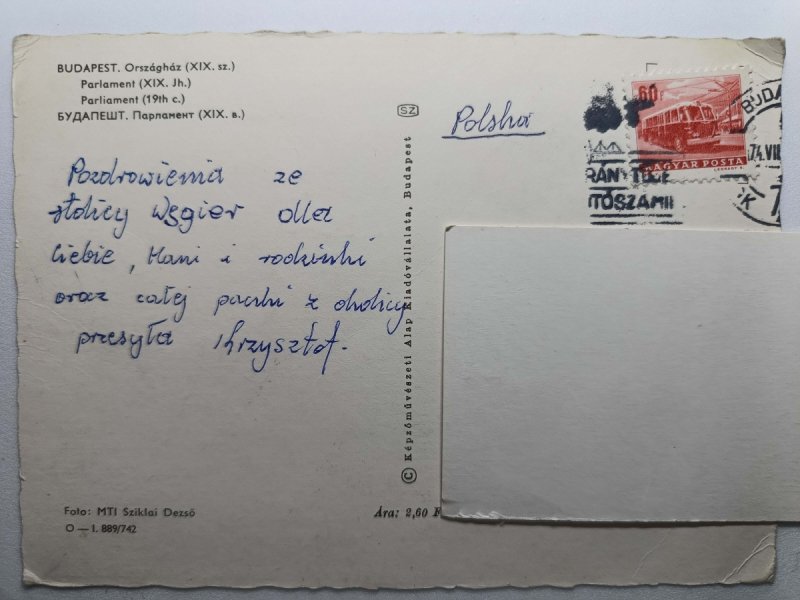 BUDAPEST. Országház (XIX. sz.)
Parlament (XIX. Jh.)
Parliament (19th c.)
БУДАПЕШТ. Парламент (XIX. в.)
SZ
Polska
60f
MAGYAR POSTA
BUDA
74.VII
7
RÁNYÍTÓ
ÍTÓSZÁM!
Pozdrowienia ze
stolicy Węgier dla
Ciebie, Hani i rodzinki
oraz całej paczki z okolicy
przesyła Krzysztof.
© Képzőművészeti Alap Kiadóvállalata, Budapest
Foto: MTI Sziklai Dezső
O—I. 889/742
Ára: 2,60 F